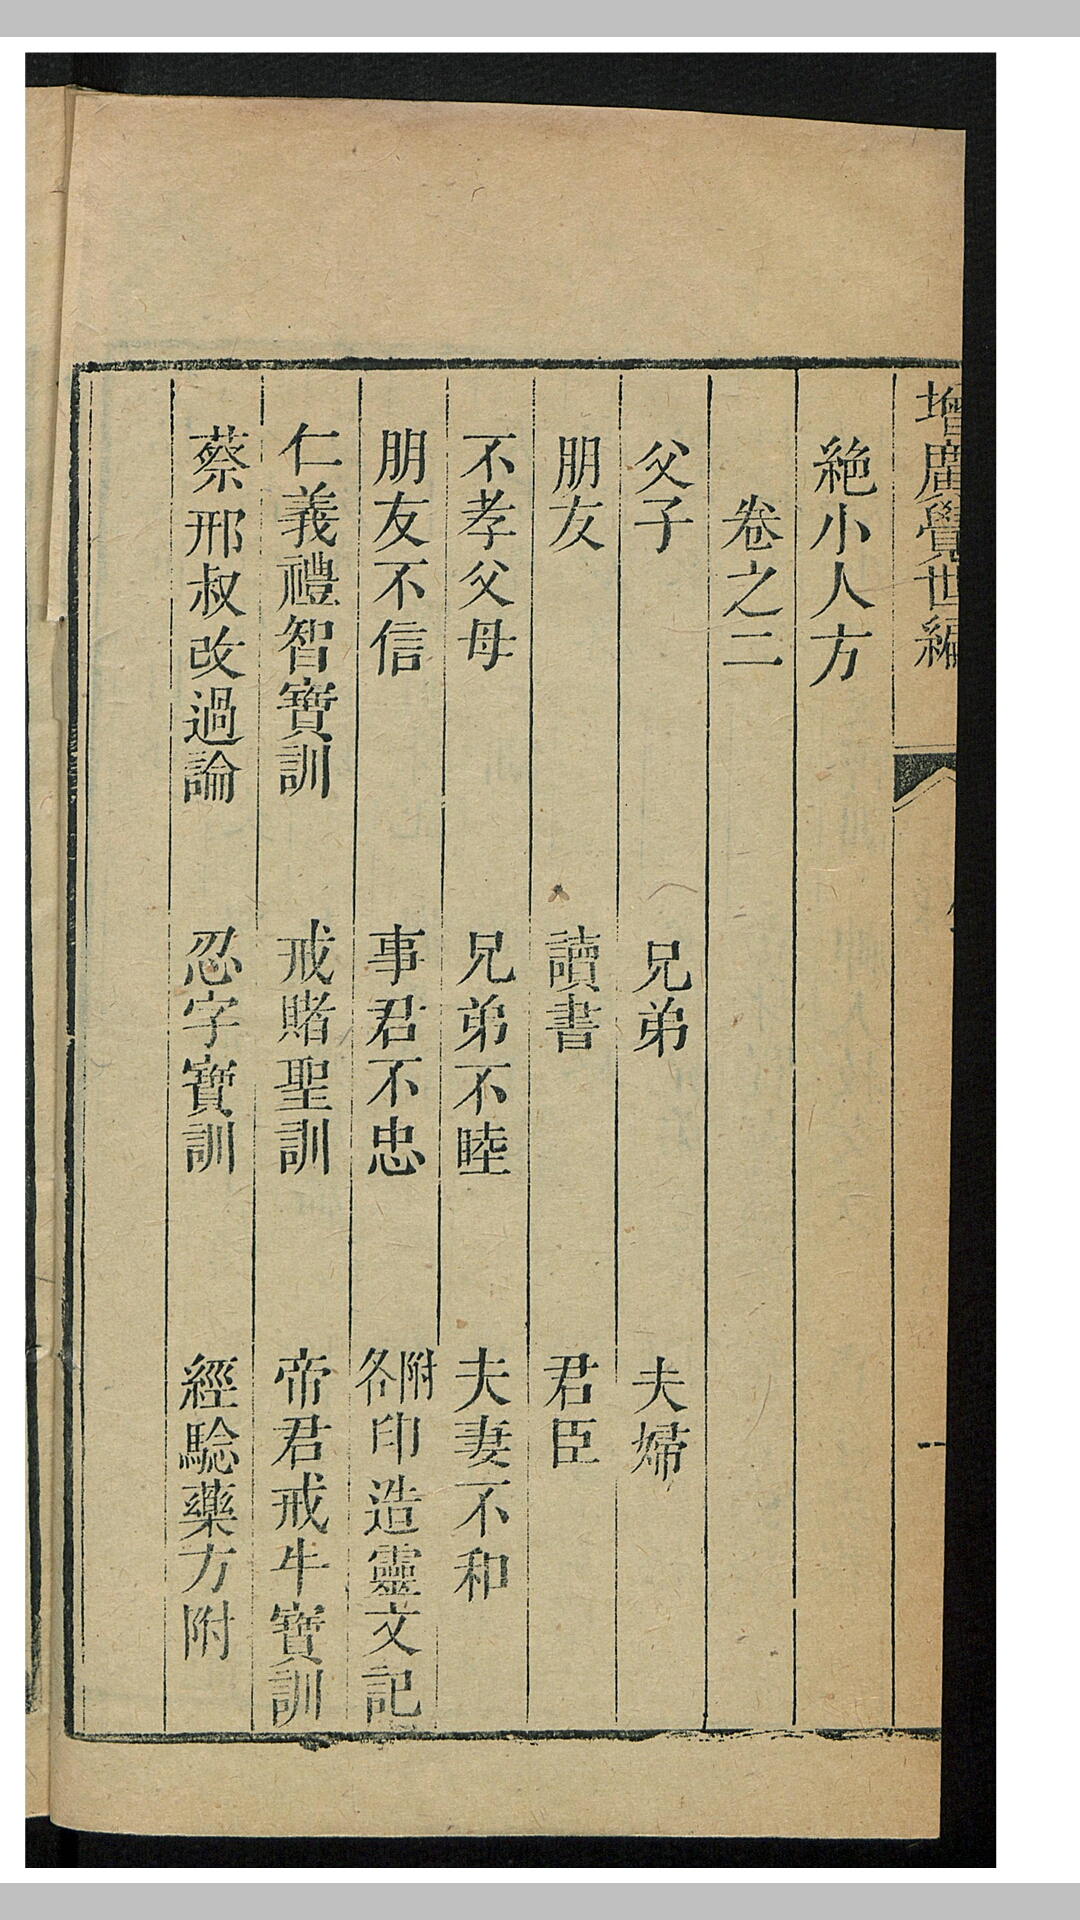 增廣覺世編
絶小人方
卷之二
父子 兄弟 夫婦
朋友 讀書 君臣
不孝父母 兄弟不睦 夫妻不和
朋友不信 事君不忠 附各印造靈文記
仁義禮智寶訓 戒賭聖訓 帝君戒牛寶訓
蔡邢叔改過論 忍字寶訓 經驗藥方附